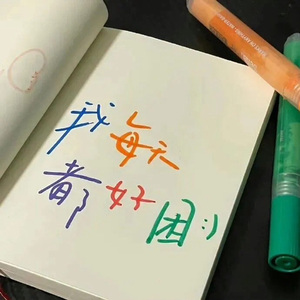 我每天
都好困:)